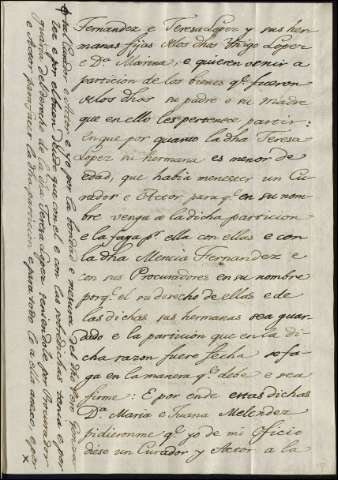 Fernandez e Teresa Lopez y sus her-
manas fijas de los dhos Iñigo Lopez
e Dª Marina, e quieren venir a
particion de los bienes qᵉ fueron
de los dhos su padre e su madre
que en ello les pertenece partir:
en que por quanto la dha Teresa
Lopez su hermana es menor de
edad, que habia menester un Cu-
rador e Actor para qᵉ en su nom-
bre venga a la dicha particion
e la faga pʳ ella con ellas e con
la dha Mencia Fernandez e
con sus Procuradores en su nombre
porqᵉ el su derecho de ellas e de
las dichas sus hermanas sea guar-
dado e la particion que en la di-
cha razon fuere fecha se fa-
ga en la manera qᵉ debe e sea
firme: E por ende estas dichas
Dª Maria e Juana Melendez
pidieronme qᵉ yo de mi Oficio
diese un Curador y Actor a la
por tal Curador e Actor e yo por la bondad
e por el buen
guarda del derecho de la dha Teresa Lopez
e Actor para la dha particion e para todo lo